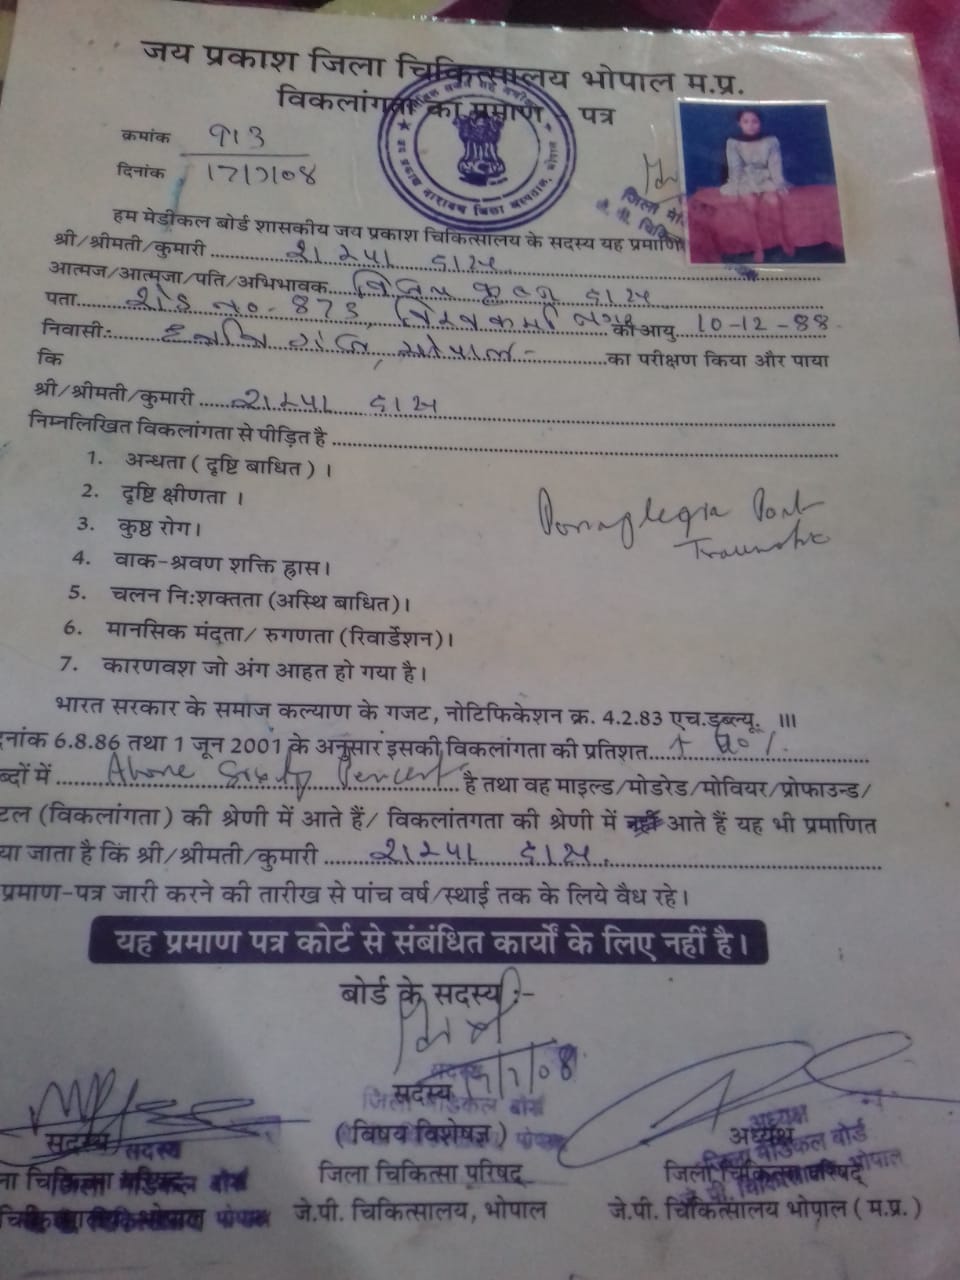 जय प्रकाश जिला चिकित्सालय भोपाल म.प्र.
विकलांगता का प्रमाण - पत्र
क्रमांक 913
दिनांक 17/7/08
हम मेडीकल बोर्ड शासकीय जय प्रकाश चिकित्सालय के सदस्य यह प्रमाणि
श्री/श्रीमती/कुमारी ........ शम्पा दास
आत्मज/आत्मजा/पति/अभिभावक.. दास
पता..... शेड न०- 873, विश्वकर्मा नगर की आयु 10-12-88
निवासी:- भोपाल- ........का परीक्षण किया और पाया
कि
श्री/श्रीमती/कुमारी ..... शम्पा दास
निम्नलिखित विकलांगता से पीड़ित है
1. अन्धता ( दृष्टि बाधित ) ।
2. दृष्टि क्षीणता ।
3. कुष्ठ रोग।
Paraplegia Post
Traumatic
4. वाक-श्रवण शक्ति ह्रास।
5. चलन नि:शक्तता (अस्थि बाधित)।
6. मानसिक मंदता/ रुगणता (रिवार्डेशन)।
7. कारणवश जो अंग आहत हो गया है।
भारत सरकार के समाज कल्याण के गजट, नोटिफिकेशन क्र. 4.2.83 एच.डब्ल्यू. III
नांक 6.8.86 तथा 1 जून 2001 के अनुसार इसकी विकलांगता की प्रतिशत
ब्दों में ..... Above Sixty Percent ....है तथा वह माइल्ड/मोडरेड/मोवियर/प्रोफाउन्ड/
टल (विकलांगता ) की श्रेणी में आते हैं/ विकलांतगता की श्रेणी में नहीं आते हैं यह भी प्रमाणित
या जाता है कि श्री/श्रीमती/कुमारी ..... शम्पा दास
प्रमाण-पत्र जारी करने की तारीख से पांच वर्ष/स्थाई तक के लिये वैध रहे।
यह प्रमाण पत्र कोर्ट से संबंधित कार्यों के लिए नहीं है।
बोर्ड के सदस्य :-
17/7/08
सदस्य सदस्य अध्यक्ष
(विषय विशेषज्ञ )
जिला चिकित्सा परिषद् जिला चिकित्सा परिषद्
जे.पी. चिकित्सालय, भोपाल जे.पी. चिकित्सालय भोपाल ( म.प्र. )